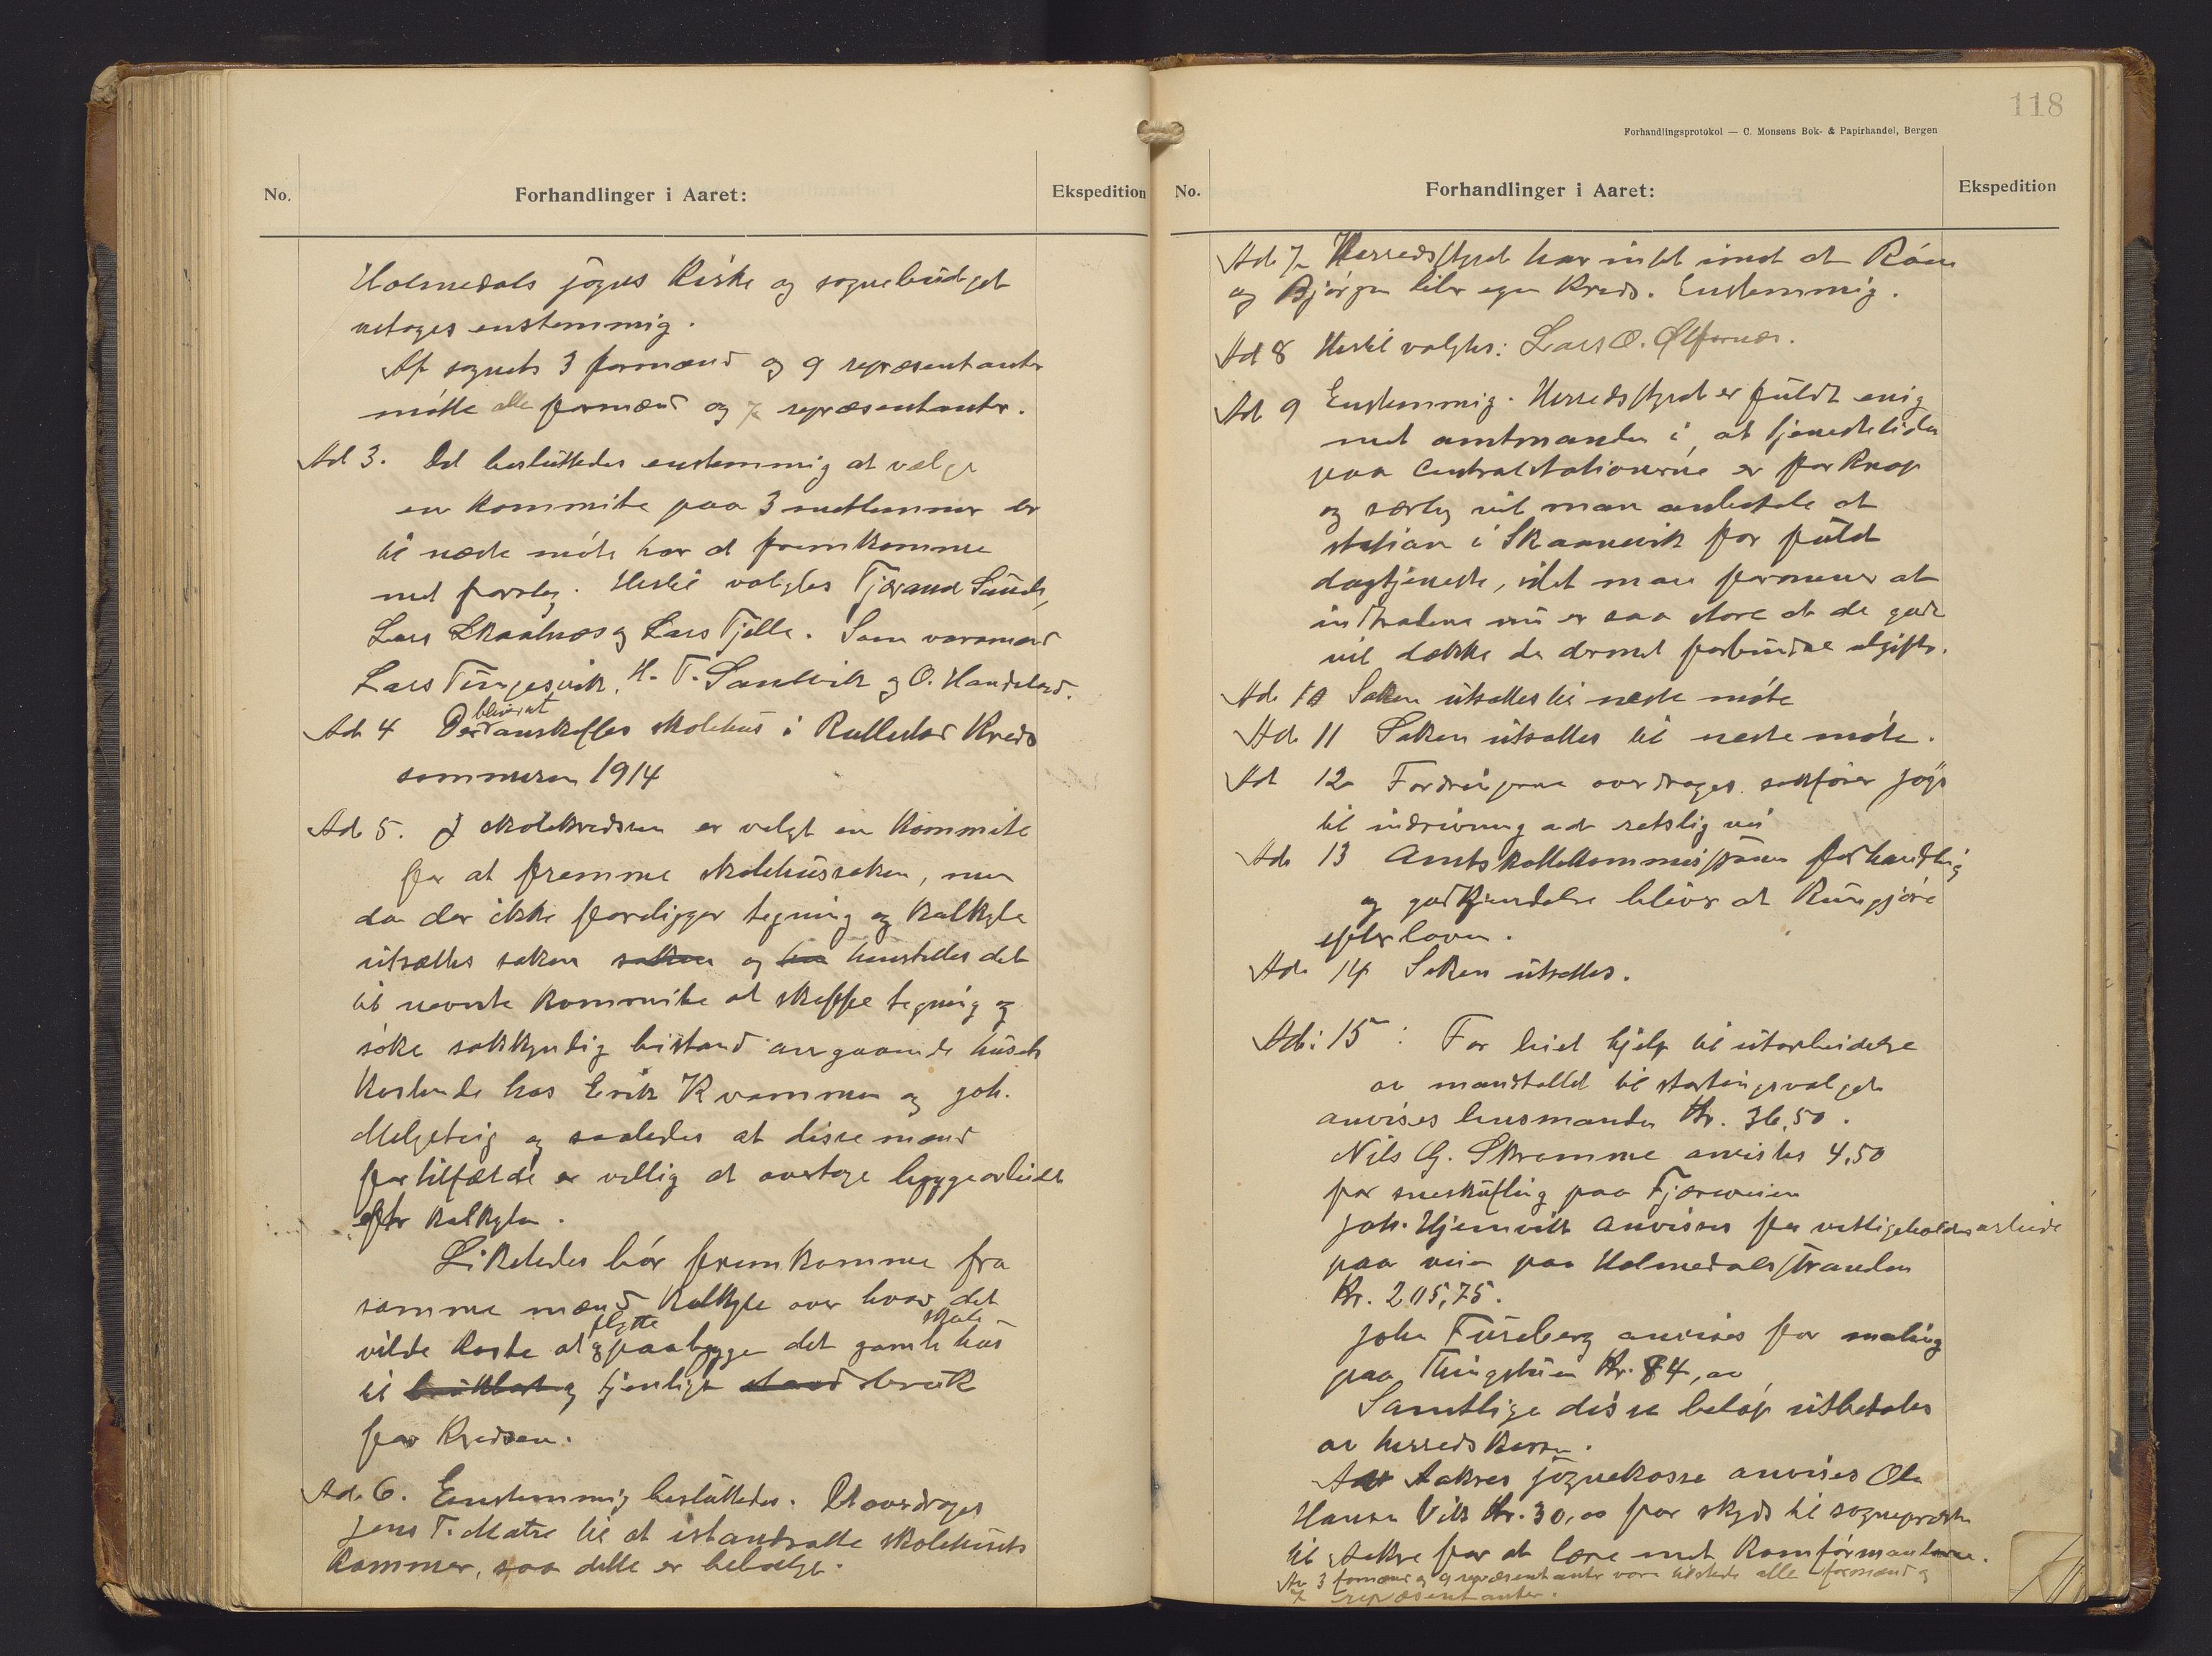 No.
Forhandlinger i Aaret:
Ekspedition
Holmedals sogns Kirke og sognebudget
vetoges enstemmig.
Af sognets 3 formænd og 9 repræsentanter
møtte alle formænd og 7 repræsentanter.
Ad 3. Det besluttedes enstemmig at vælge
en Kommite paa 3 medlemmer der
til næste møte har at fremkomme
med forslag. Hertil valgtes Tjærand Sunde,
Lars Skaalnes og Lars Fjelle. Som varamænd
Lars Tungesvik, H. T. Sandvik og O. Handeland.
blir at
Ad 4 Der anskaffes skolehus i Rullestad Kreds
sommeren 1914
Ad 5. I skolekredsen er valgt en Kommite
for at fremme skolehussaken, men
da der ikke foreligger tegning og Kalkyle
utsættes saken saken og hen henstilles det
til nevnte Kommite at skaffe tegning og
søke sakkyndig bistand angaaende husets
Kostende hos Erik Kvammen og Joh.
Milgeteig og saaledes at disse mænd
for tilfælde er villig at overtage byggearbeidet
efter Kalkylen.
Likeledes bør fremkomme fra
samme mænd Kalkyle over hvad det
flytte skole-
vilde Koste at og paabygge det gamle hus
til brukbart og tjenlige stand bruk
for Kredsen.
Ad 6. Enstemmig besluttedes. Det overdrages
Jens T. Matre til at istandsætte skolehusets
Kammer, saa dette er beboelig.
118
Forhandlingsprotokol — C. Monsens Bok- & Papirhandel, Bergen
No.
Forhandlinger i Aaret:
Ekspedition
Ad 7 Herredsstyret har intet imot at
og Bjørgen blir egen Kreds. Enstemmig.
Ad 8 Hertil valgtes: Lars O. Ølfernes.
Ad 9 Enstemmig. Herredsstyret er fuldt enig
med amtmanden i, at tjenestetiden
paa Centralstationerne er for Knap
og særlig vil man anbefale at
station i Skaanevik faar fuld
dagtjeneste, idet man formener at
indtægtene nu er saa store at de godt
vil dække de dermed forbundne utgifter.
Ad 10 Saken utsættes til næste møte
Ad 11 Saken utsættes til næste møte.
Ad 12 Fordringerne overdrages sakfører
til inddrivning ad retslig vei
Ad 13 Amtsskattekommissionens forhandling
og godkjendelse bliver at Kungjøre
efter loven.
Ad 14 Saken utsættes.
Ad: 15: For leiet hjelp til utarbeidelse
av mandtallet til stortingsvalget
anvises lensmanden Kr. 36,50.
Nils G. Skromme anvistes 4,50
for snøskufling paa Fjæreveien
Joh. Hjemvik anvises for vedligeholdsarbeide
paa veien paa Holmedalsstranden
Kr. 205,75.
John Fureberg anvises for maling
paa Thingstuen Kr. 84,00
Samtlige disse beløp utbetales
av herredskassen.
Av Aakres sognekasse anvises Ole
Hansen Vik Kr. 30,00 for skyds til sogneprest
til Aakre for at læse med Komfirmantene.
Av 3 formænd og 9 repræsentanter var tilstede alle formænd og
7 repræsentanter.